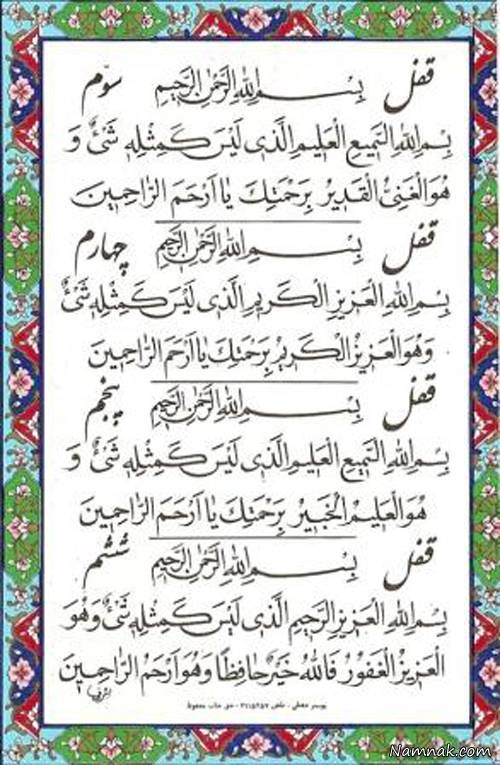 قفل بِسْمِ اللهِ الرَّحْمٰنِ الرَّحِيمِ سوّم
بِسْمِ اللهِ السَّمِيعِ الْعَلِيمِ الَّذِى لَيْسَ كَمِثْلِهِ شَىْءٌ وَ
هُوَ الْغَنِىُّ الْقَدِيرُ بِرَحْمَتِكَ يٰا اَرْحَمَ الرّٰاحِمِينَ
قفل بِسْمِ اللهِ الرَّحْمٰنِ الرَّحِيمِ چهارم
بِسْمِ اللهِ الْعَزِيزِ الْكَرِيمِ الَّذِى لَيْسَ كَمِثْلِهِ شَىْءٌ
وَ هُوَ الْعَزِيزُ الْكَرِيمُ بِرَحْمَتِكَ يٰا اَرْحَمَ الرّٰاحِمِينَ
قفل بِسْمِ اللهِ الرَّحْمٰنِ الرَّحِيمِ پنجم
بِسْمِ اللهِ السَّمِيعِ الْعَلِيمِ الَّذِى لَيْسَ كَمِثْلِهِ شَىْءٌ وَ
هُوَ الْعَلِيمُ الْخَبِيرُ بِرَحْمَتِكَ يٰا اَرْحَمَ الرّٰاحِمِينَ
قفل بِسْمِ اللهِ الرَّحْمٰنِ الرَّحِيمِ ششم
بِسْمِ اللهِ الْعَزِيزِ الرَّحِيمِ الَّذِى لَيْسَ كَمِثْلِهِ شَىْءٌ وَ هُوَ
الْعَزِيزُ الْغَفُورُ فَاللهُ خَيْرٌ حٰافِظًا وَ هُوَ اَرْحَمُ الرّٰاحِمِينَ
Namnak.com